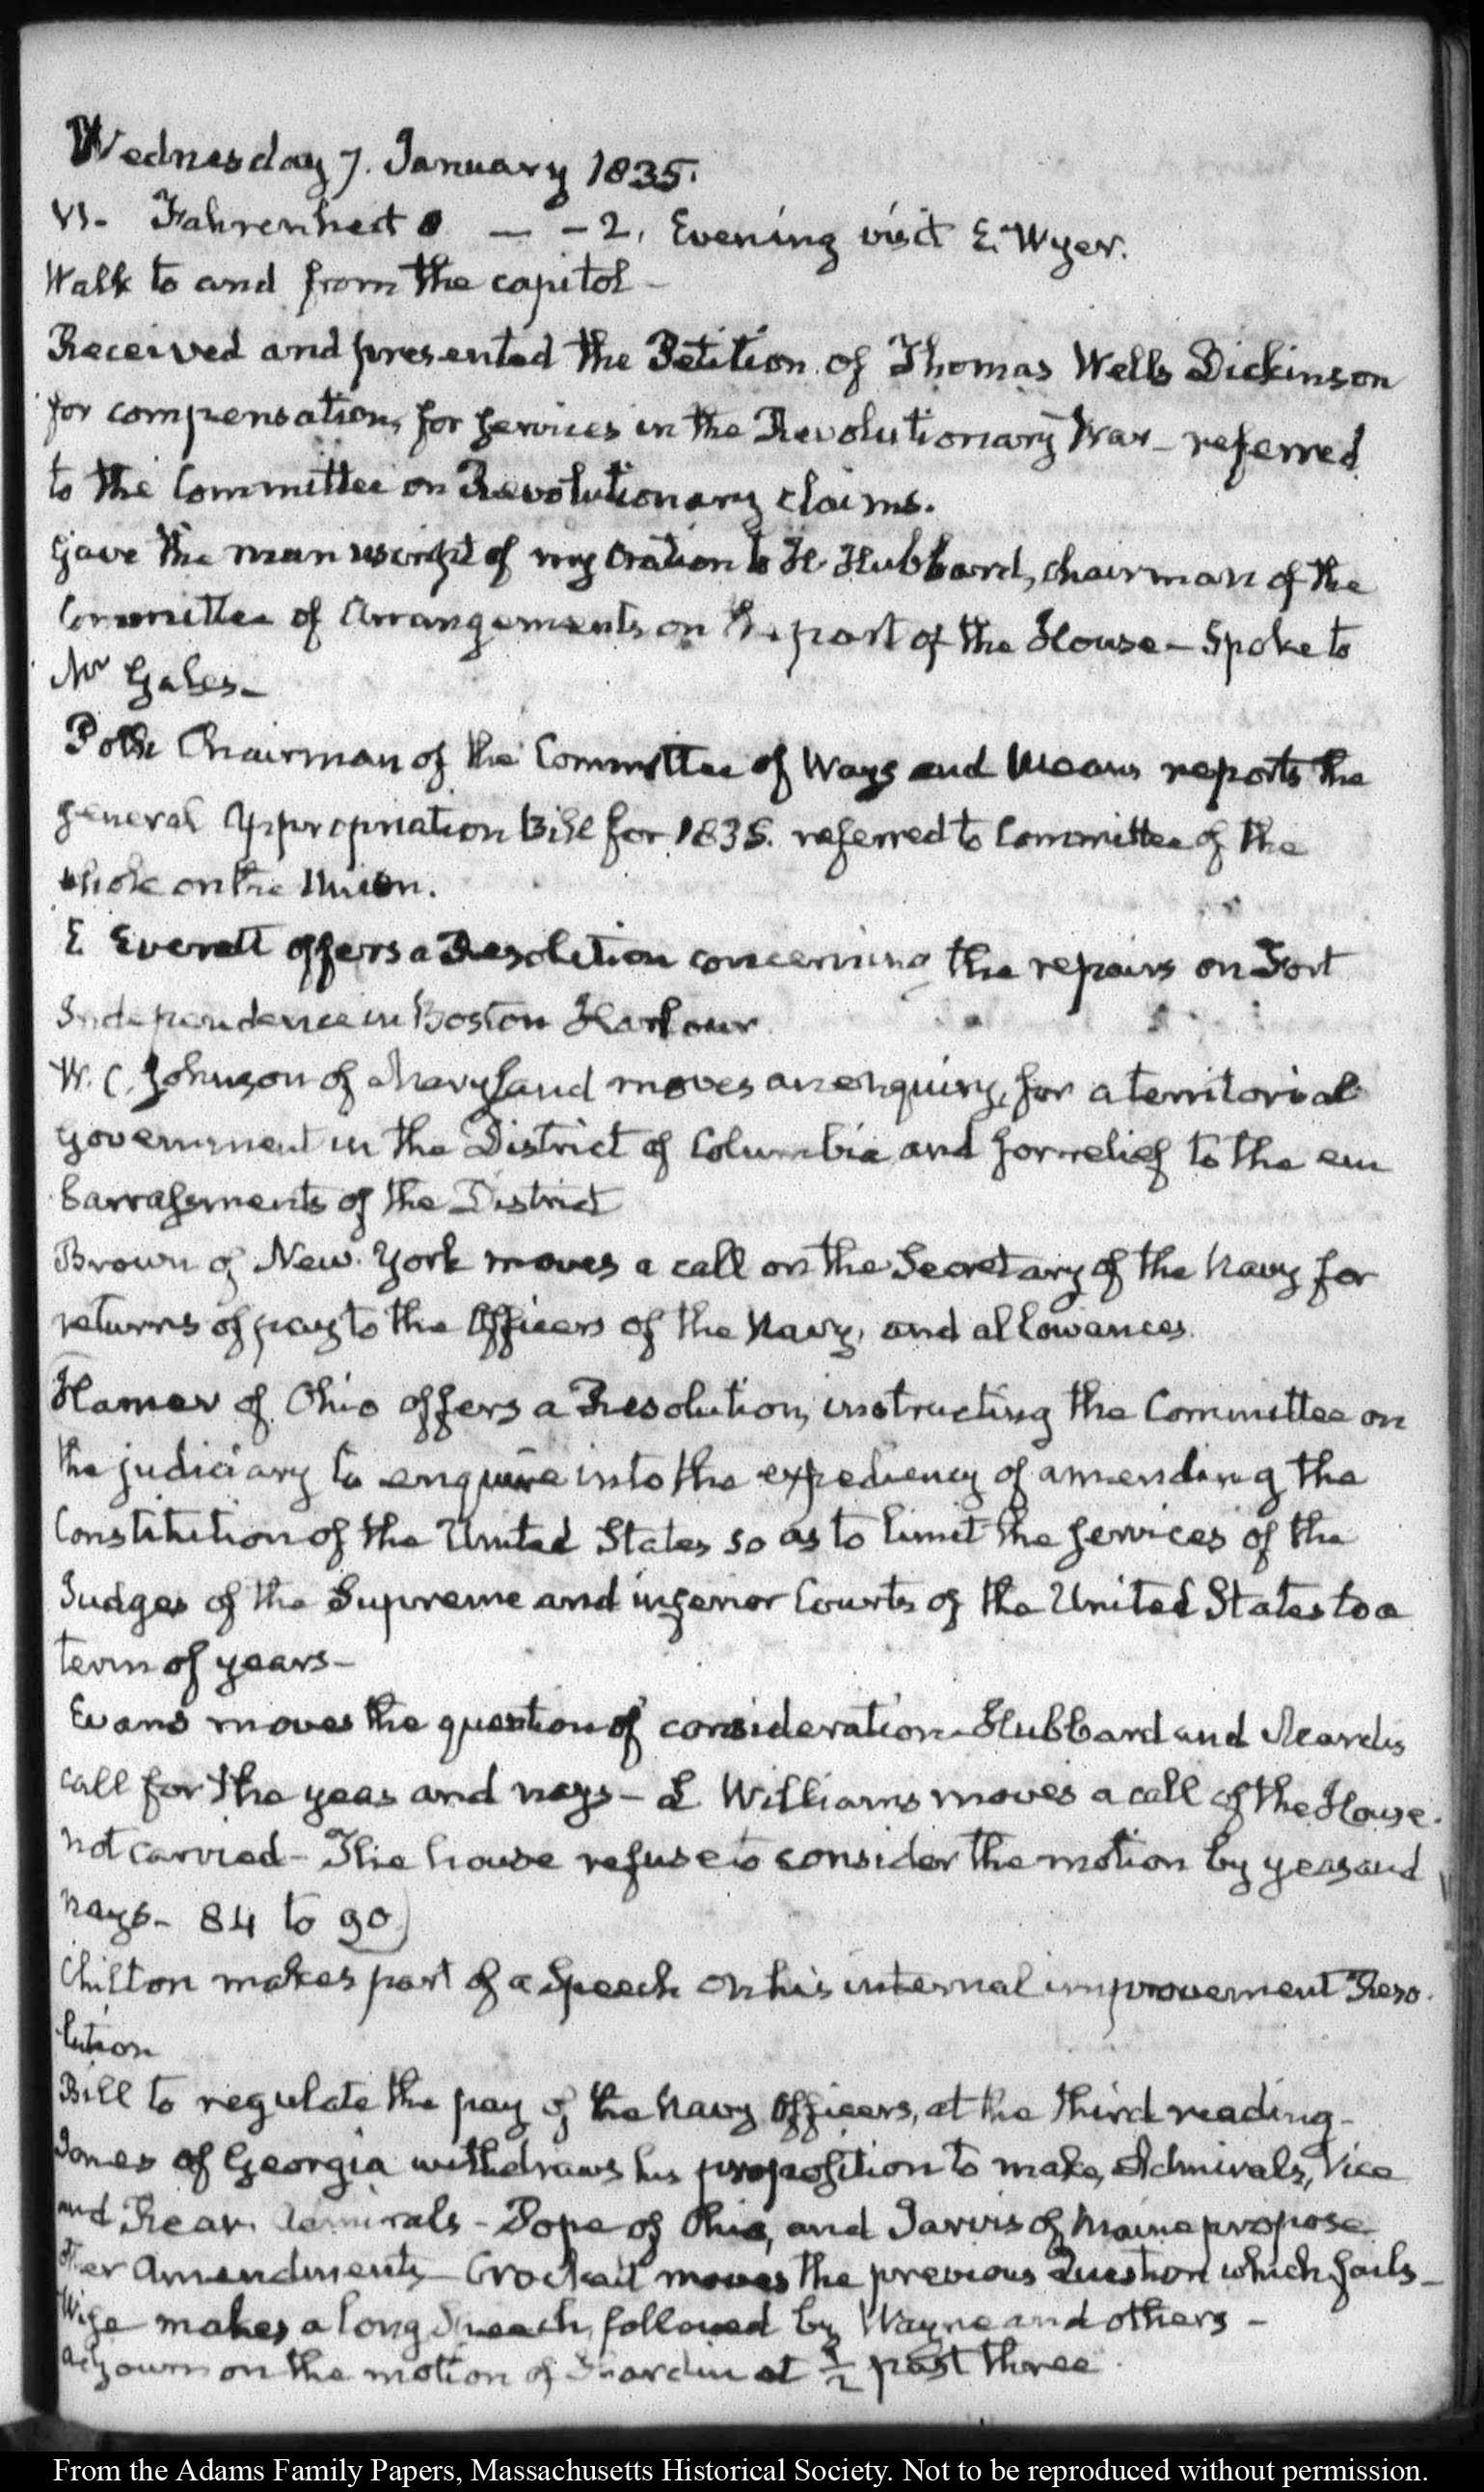 Wednesday 7. January 1835.
VI. Fahrenheit 0 — -2, Evening visit E. Wyer.
Walk to and from the capitol -
Received and presented the Petition of Thomas Wells Dickinson
for compensation, for services in the Revolutionary War - referred
to the Committee on Revolutionary claims.
Gave the manuscript of my Oration to H. Hubbard, chairman of the
Committee of Arrangements on the part of the House - Spoke to
Mr Gales -
Polk Chairman of the Committee of Ways and Means reports the
general Appropriation Bill for 1835. referred to Committee of the
whole on the Union.
E Everett offers a Resolution concerning the repairs on Fort
Independence in Boston Harbour
W. C. Johnson of Maryland moves an enquiry, for a territorial
Government in the District of Columbia and for relief to the em
barrassments of the District
Brown of New York moves a call on the Secretary of the Navy for
returns of pay to the Officers of the Navy, and allowances.
Hamer of Ohio offers a Resolution, instructing the Committee on
the judiciary to enquire into the expediency of amending the
Constitution of the United States so as to limit the services of the
Judges of the Supreme and inferior Courts of the United States to a
term of years -
Evans moves the question of consideration - Hubbard and
call for the yeas and nays - L Williams moves a call of the House.
not carried - The house refuse to consider the motion by yeas and
nays - 84 to 90)
Chilton makes part of a Speech on his internal improvement Reso.
lution
Bill to regulate the pay of the Navy Officers, at the third reading -
Jones of Georgia withdraws his proposition to make, Admirals, Vice
and Rear Admirals - Pope of and Jarvis of Maine propose
other Amendments - Crockett moves the previous Question which fails -
Wise makes a long Speech, followed by Wayne and others -
adjourn on the motion of Hardin at ½ past three.
From the Adams Family Papers, Massachusetts Historical Society. Not to be reproduced without permission.